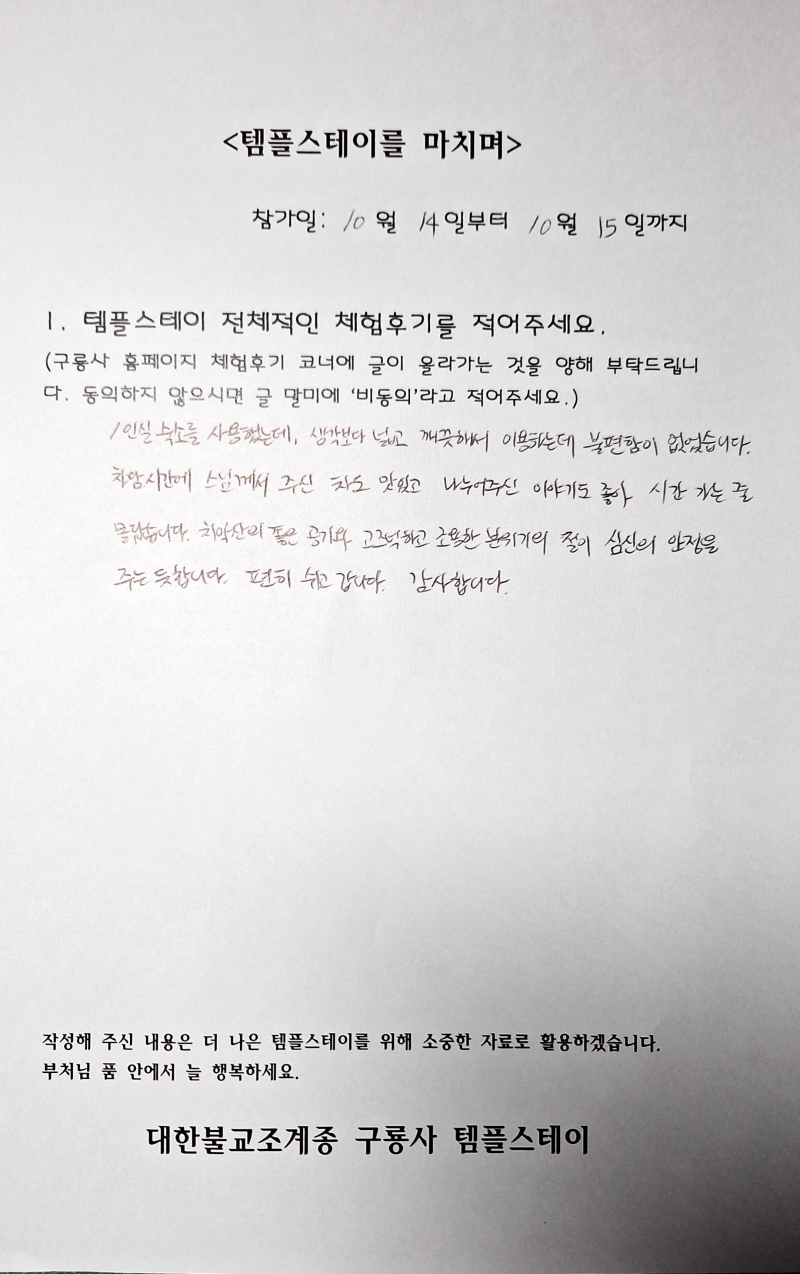 <템플스테이를 마치며>
참가일: 10 월 14일부터 10월 15일까지
1. 템플스테이 전체적인 체험후기를 적어주세요.
(구룡사 홈페이지 체험후기 코너에 글이 올라가는 것을 양해 부탁드립니
다. 동의하지 않으시면 글 말미에 '비동의'라고 적어주세요.)
1인실 숙소를 사용했는데, 생각보다 넓고 깨끗해서 이용하는데 불편함이 없었습니다.
차담시간에 스님께서 주신 차도 맛있고 나누어주신 이야기도 좋아 시간 가는 줄
몰랐습니다. 치악산의 좋은 공기와 고즈넉하고 조용한 분위기의 절이 심신의 안정을
주는 듯합니다. 편히 쉬고 갑니다. 감사합니다.
작성해 주신 내용은 더 나은 템플스테이를 위해 소중한 자료로 활용하겠습니다.
부처님 품 안에서 늘 행복하세요.
대한불교조계종 구룡사 템플스테이